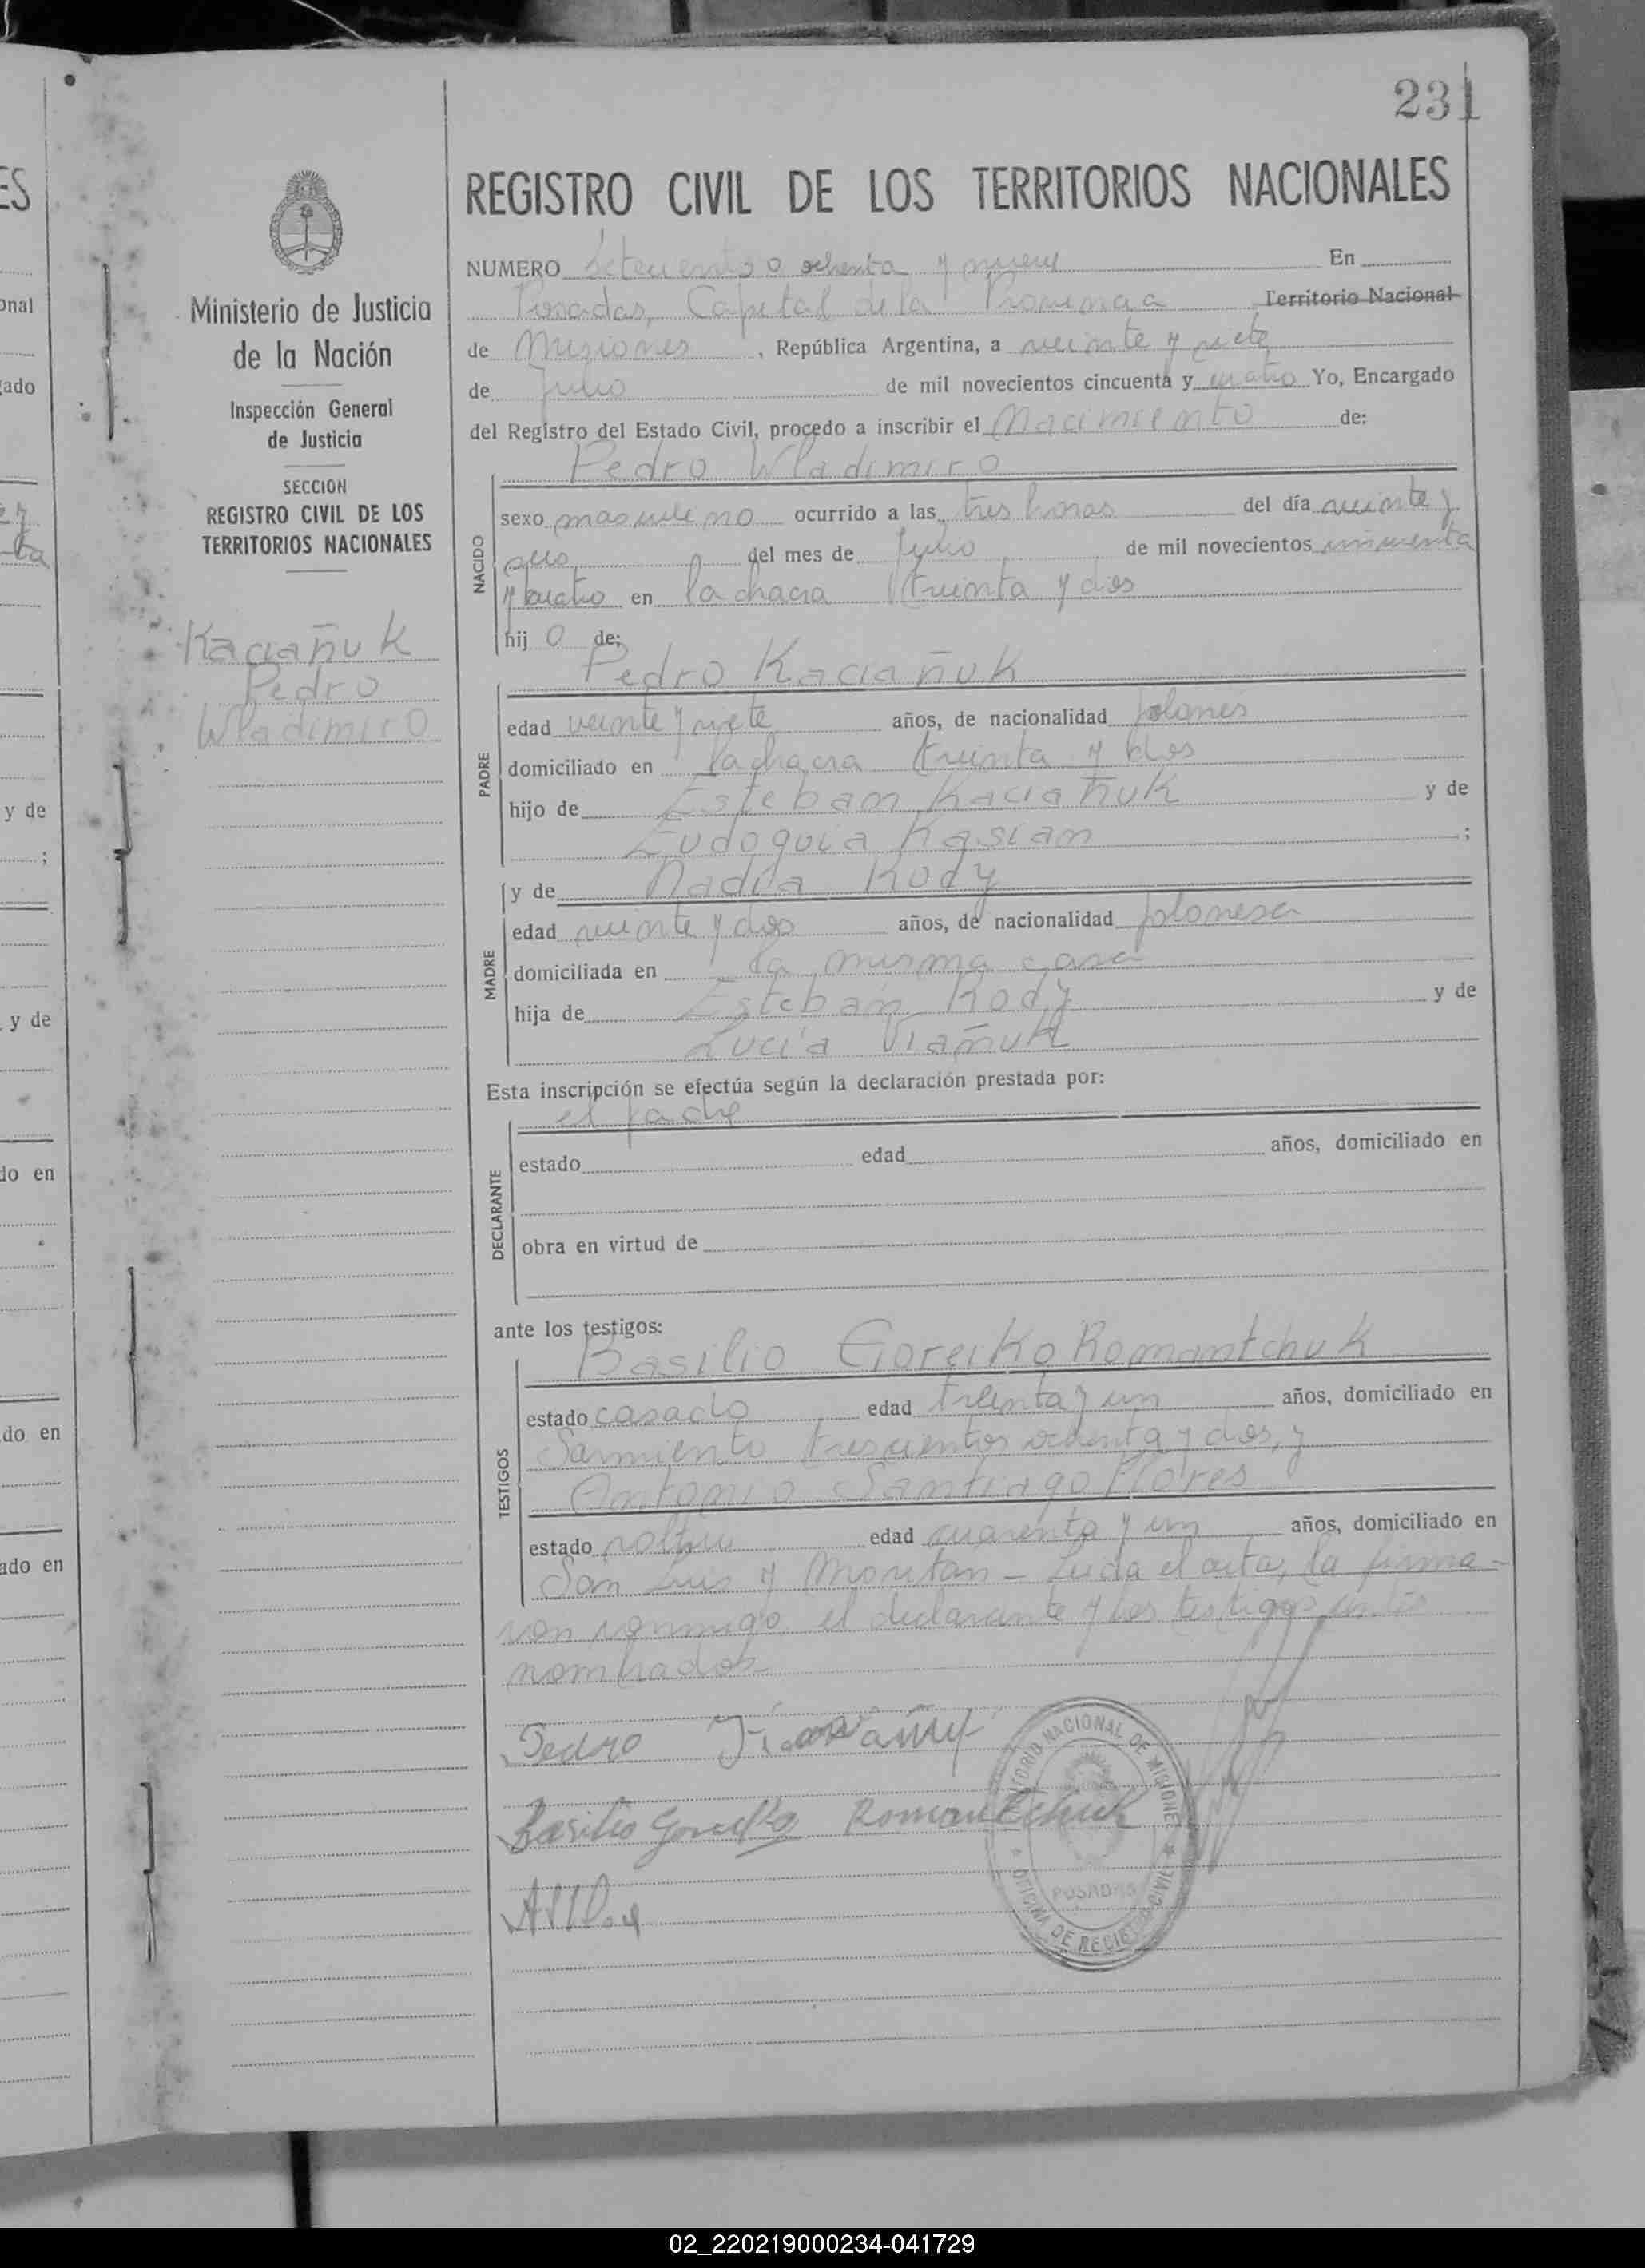 231
REGISTRO CIVIL DE LOS TERRITORIOS NACIONALES
Ministerio de Justicia
de la Nación
Inspección General
de Justicia
SECCION
REGISTRO CIVIL DE LOS
TERRITORIOS NACIONALES
Kaciañuk
Pedro
Wladimiro
NUMERO Setecientos ochenta y nueve En
Posadas, Capital de la Provincia Territorio Nacional
de Misiones, República Argentina, a veinte y siete
de Julio de mil novecientos cincuenta y cuatro Yo, Encargado
del Registro del Estado Civil, procedo a inscribir el Nacimiento de:
Pedro Wladimiro
NACIDO
sexo masculino ocurrido a las tres horas del día veinte y
seis del mes de Julio de mil novecientos cincuenta
y cuatro en la chacra treinta y dos
hijo de:
Pedro Kaciañuk
PADRE
edad veinte y siete años, de nacionalidad polonés
domiciliado en la chacra treinta y dos
hijo de Esteban Kaciañuk y de
Eudoquia Kaslan ;
y de Nadia Kody
MADRE
edad veinte y dos años, de nacionalidad polonesa
domiciliada en la misma casa
hija de Esteban Kody y de
Lucía Viañuk
Esta inscripción se efectúa según la declaración prestada por:
el padre
DECLARANTE
estado edad años, domiciliado en
obra en virtud de
ante los testigos:
Basilio Goreiko Romantchuk
TESTIGOS
estado casado edad treinta y un años, domiciliado en
Sarmiento trescientos ochenta y dos, y
Antonio Santiago Flores
estado soltero edad cuarenta y un años, domiciliado en
San Luis y Moritan - Leida el acta, la firma-
ron conmigo el declarante y los testigos antes
nombrados
Pedro Kaciañuk
Basilio Goreiko Romantchuk
TERRITORIO NACIONAL DE MISIONES
POSADAS
OFICINA DE REGISTRO CIVIL
ES
onal
gado
y de
;
y de
do en
do en
ado en
02_220219000234-041729